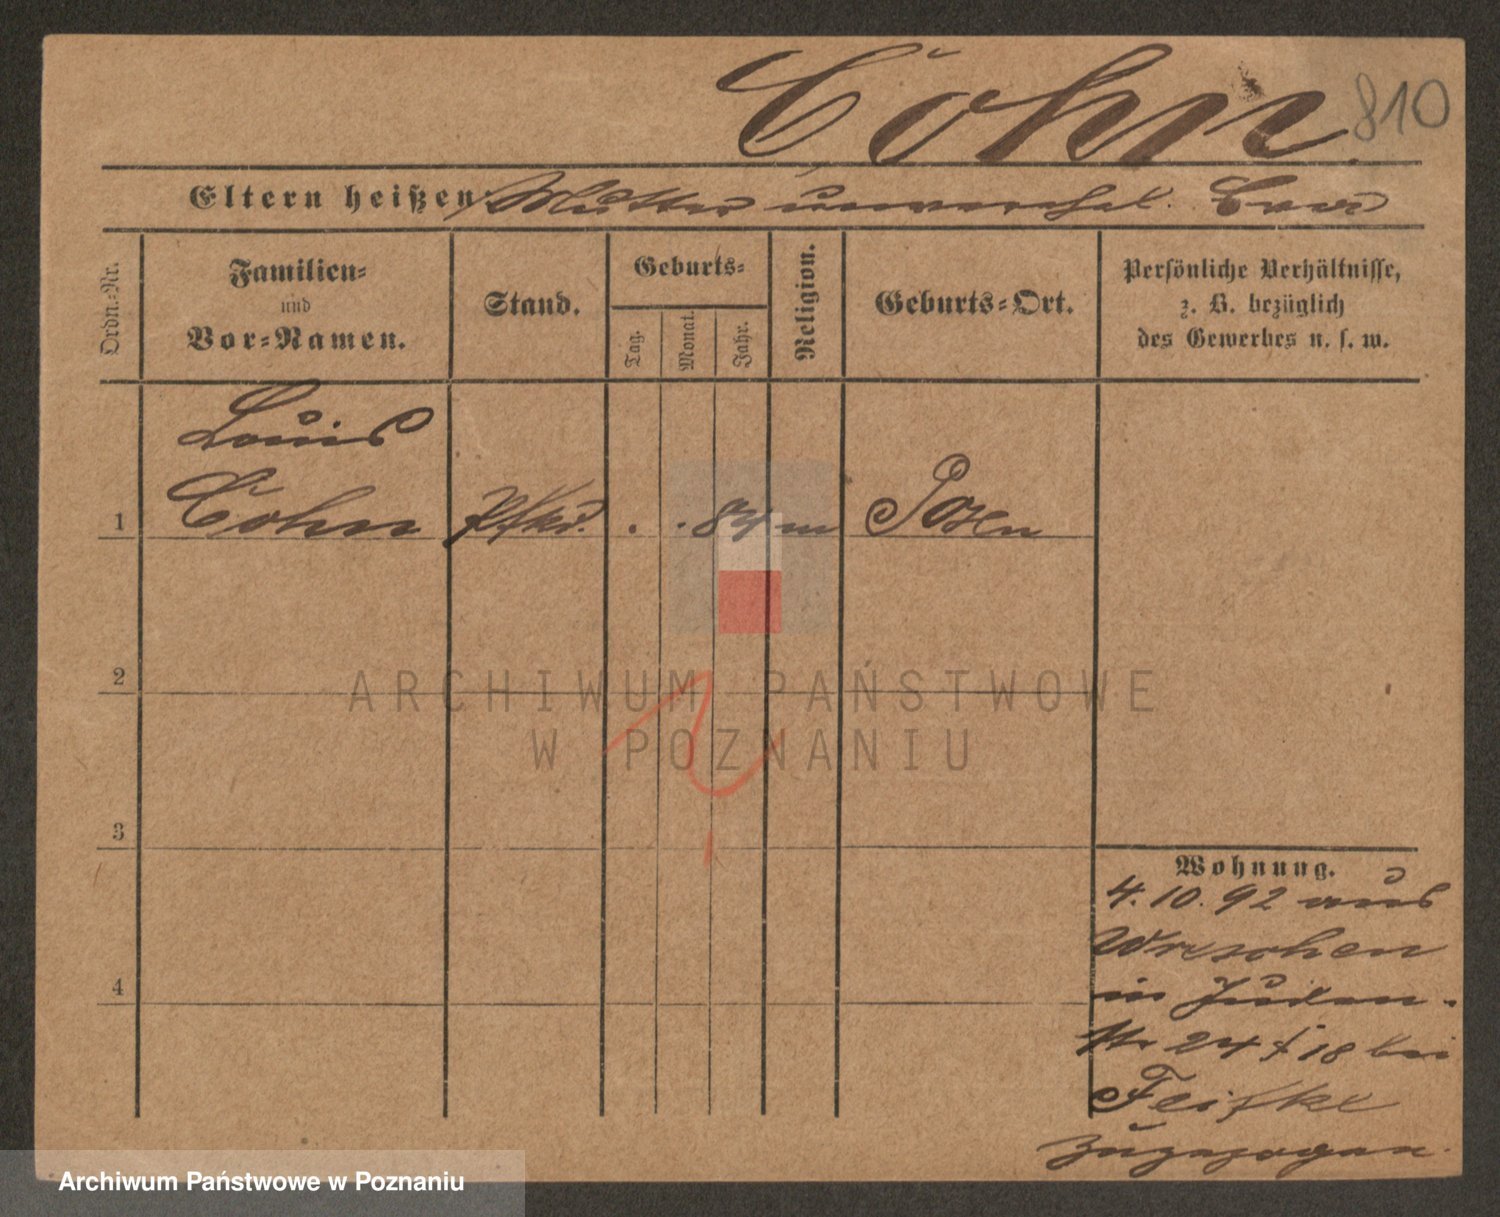 Cohn
810
Eltern heißen: Mutter unverehel.
Ordn.-Nr.
Familien-
und
Vor-Namen.
Stand.
Geburts-
Tag.
Monat.
Jahr.
Religion.
Geburts-Ort.
Persönliche Verhältnisse,
z. B. bezüglich
des Gewerbes u. s. w.
Louis
1 Cohn Pflkd. . . 84 m Posen
2
3
4
ARCHIWUM PAŃSTWOWE
W POZNANIU
Wohnung.
4. 10. 92 aus
Wreschen
in Juden-
str 24 / 18 bei
Feifke
zugezogen.
Archiwum Państwowe w Poznaniu